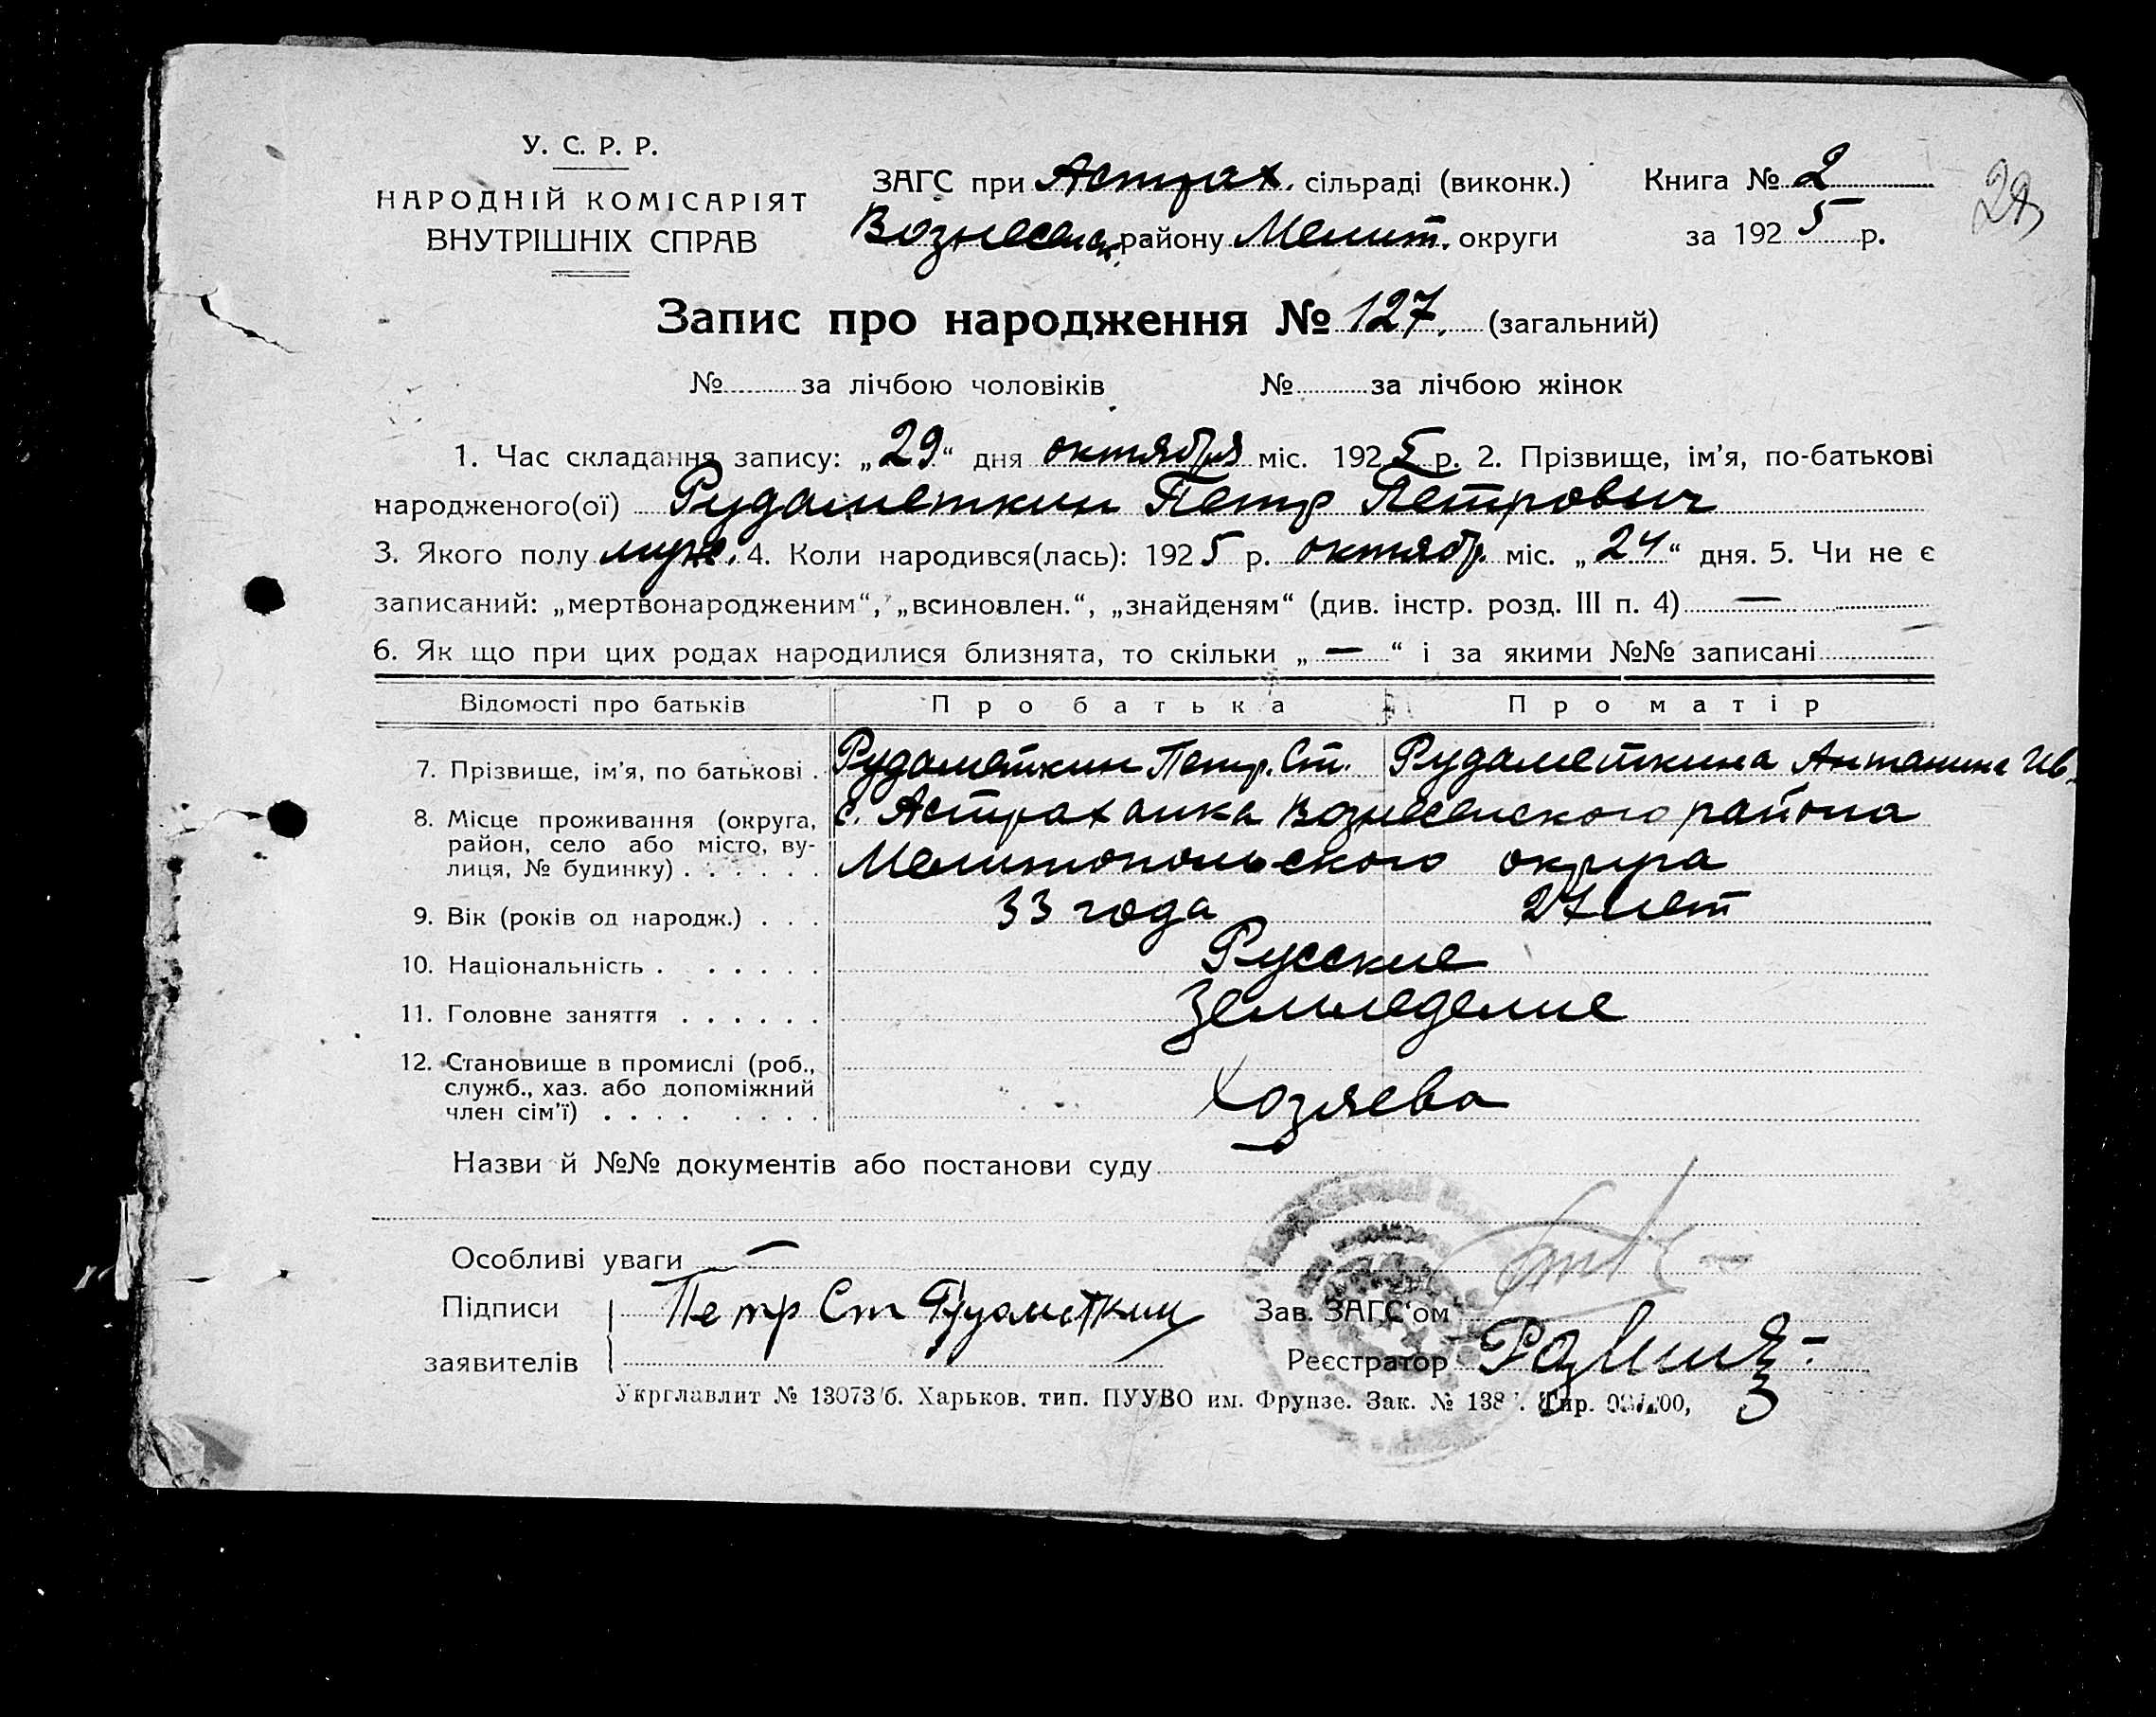 У. С. Р. Р.
НАРОДНІЙ КОМІСАРІЯТ
ВНУТРІШНІХ СПРАВ
ЗАГС при Астрах. сільраді (виконк.)
Вознесенск. району Мелит. округи
Книга № 2
за 1925 р.
Запис про народження № 127. (загальний)
№ за лічбою чоловіків № за лічбою жінок
1. Час складання запису: „29“ дня октября міс. 1925 р. 2. Прізвище, ім’я, по-батькові
народженого(ої) Рудаметкин Петр Петрович
3. Якого полу муж. 4. Коли народився(лась): 1925 р. октябр. міс. „24“ дня. 5. Чи не є
записаний: „мертвонародженим“, „всиновлен.“, „знайденям“ (див. інстр. розд. III п. 4) —
6. Як що при цих родах народилися близнята, то скільки „—“ і за якими №№ записані
Відомості про батьків Про батька Про матір
7. Прізвище, ім’я, по батькові . Рудаметкин Петр. Ст. Рудаметкина Антанина Ив.
8. Місце проживання (округа, с. Астраханка Вознесенского района
район, село або місто, ву-
лиця, № будинку) . . . . . . Мелитопольского округа
9. Вік (років од народж.) . . . 33 года 27 лет
10. Національність . . . . . . Русские
11. Головне заняття . . . . . . Земледелие
12. Становище в промислі (роб.,
служб., хаз. або допоміжний Хозяева
член сім’ї) . . . . . . . .
Назви й №№ документів або постанови суду
Особливі уваги —
Підписи Петр Ст Рудометкин Зав. ЗАГС‘ом
заявителів Реєстратор
Укрглавлит № 13073/б. Харьков. тип. ПУУВО им. Фрунзе. Зак. № 138 . Тир.